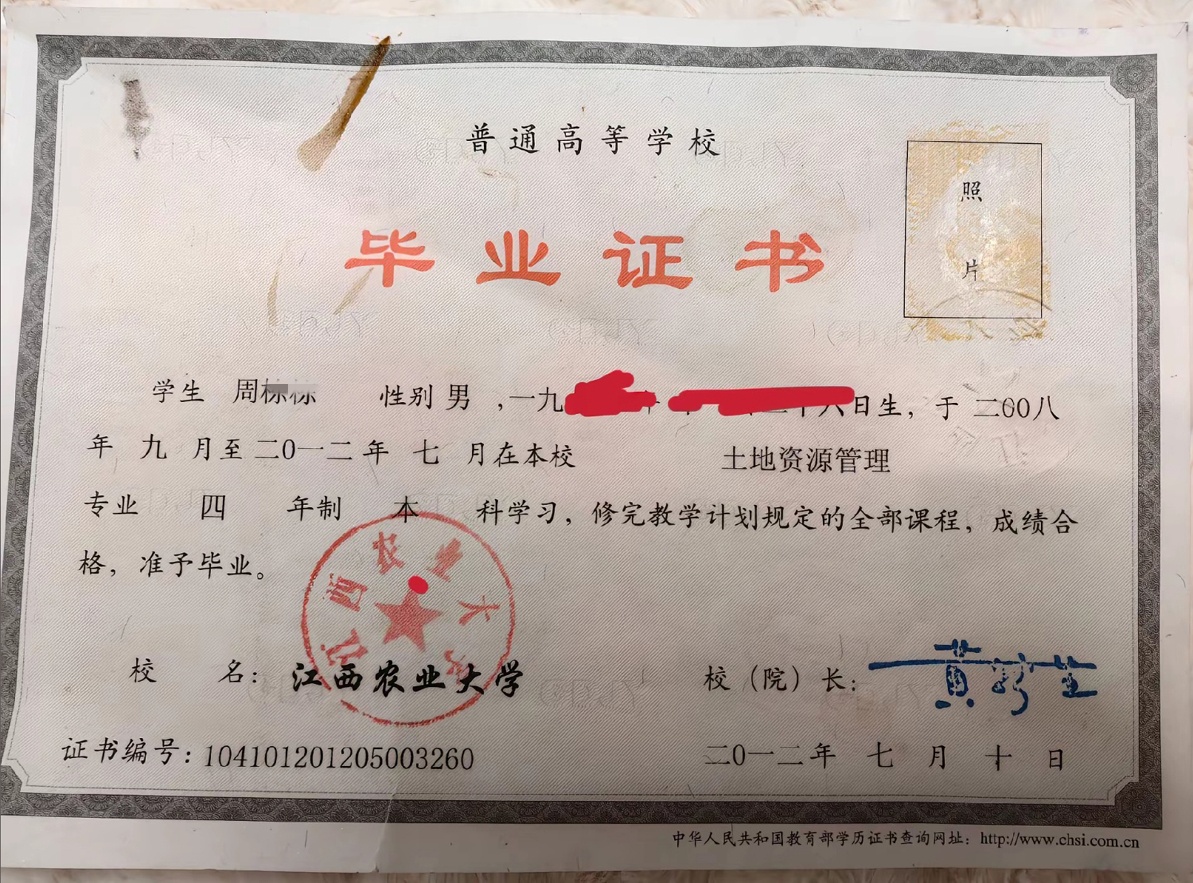 普通高等学校
毕业证书
照
片
学生 周 性别 男 ,一九 日生，于 二〇〇八
年 九 月至 二〇一二 年 七 月在本校 土地资源管理
专业 四 年制 本 科学习，修完教学计划规定的全部课程，成绩合
格，准予毕业。
江西农业大学
校 名：江西农业大学 校（院）长：
证书编号：104101201205003260 二〇一二年 七 月 十 日
中华人民共和国教育部学历证书查询网址：http://www.chsi.com.cn